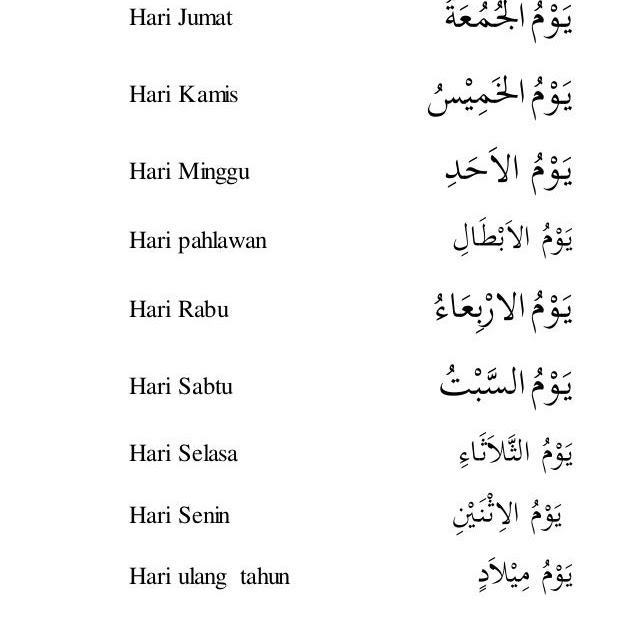 Hari Jumat يَوْمُ الجُمُعَةَ
Hari Kamis يَوْمُ الخَمِيْسُ
Hari Minggu يَوْمُ الاَحَدِ
Hari pahlawan يَوْمُ الاَبْطَالِ
Hari Rabu يَوْمُ الارْبِعَاءُ
Hari Sabtu يَوْمُ السَّبْتُ
Hari Selasa يَوْمُ الثَّلاَثَاءِ
Hari Senin يَوْمُ الاِثْنَيْنِ
Hari ulang tahun يَوْمُ مِيْلاَدٍ